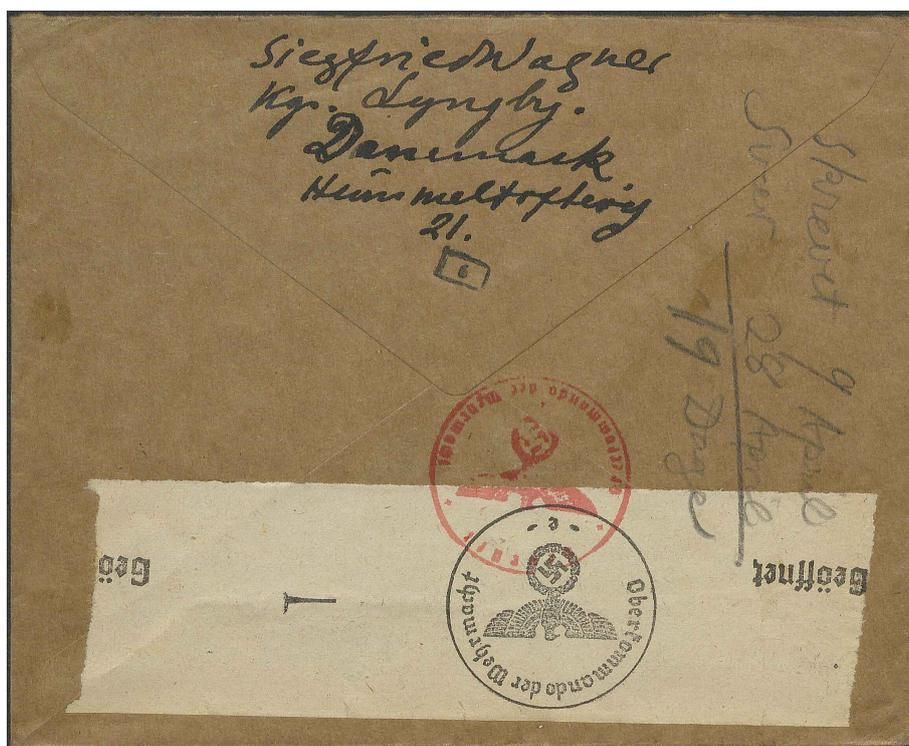 Siegfried Wagner
Kgs. Lyngby.
Danemark
Hummeltoftevej
21.
6
Skrevet 9 April
Svar 28 April
19 Dage
Geöffnet
Geö
Oberkommando der Wehrmacht
e
Oberkommando der Wehrmacht